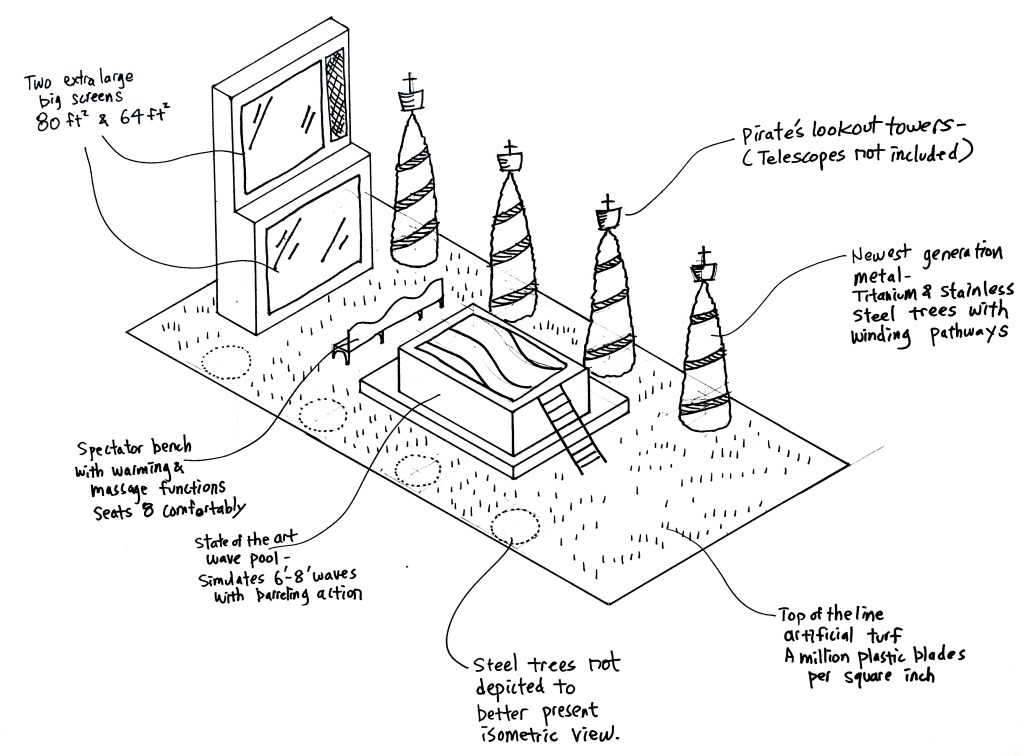 Two extra large
big screens
80 ft² & 64 ft²
Pirate's lookout towers-
(Telescopes not included)
Newest generation
metal-
Titanium & stainless
steel trees with
winding pathways
Spectator bench
with warming &
massage functions
Seats 8 comfortably
State of the art
wave pool-
Simulates 6'-8' waves
with barreling action
Steel trees not
depicted to
better present
isometric view.
Top of the line
artificial turf
A million plastic blades
per square inch